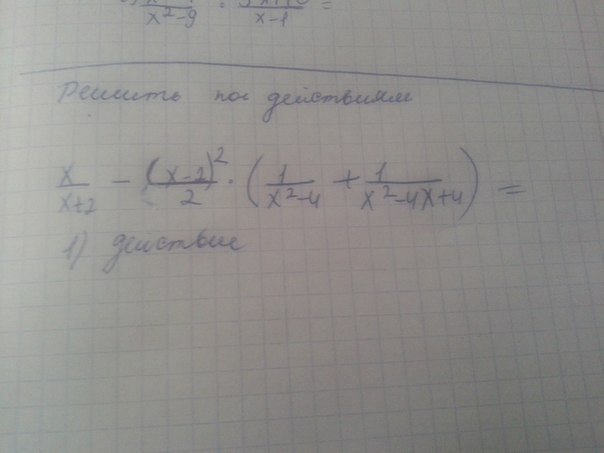 x²-9 x-1 =
Решить по действиям
x/(x+2) - (x-2)²/2 · (1/(x²-4) + 1/(x²-4x+4)) =
1) действие